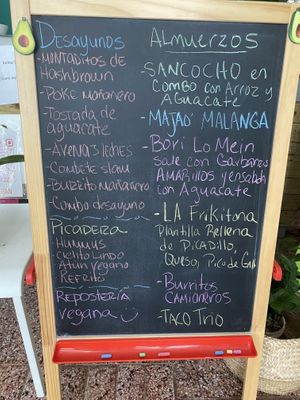 Desayunos
-Montaditos de
Hashbrown
-Poke Mañanero
-Tostada de
aguacate
-Avena 3 leches
-Combete slam
-Burrito Mañanero
-Combo desayuno
Picadera
-Hummus
-Cielito Lindo
-Atun vegano
-Refrito
Repostería
vegana
Almuerzos
-SANCOCHO en
Combo con Arroz y
Aguacate
-MAJAO' MALANGA
-Bori Lo Mein
sale con Garbanzos
AMARILLOS y ensalada
con Aguacate
-LA Frikitona
Plantilla Rellena
de Picadillo,
Queso, Pico de Gallo
-Burritos
CAMIONEROS
-Taco Trio